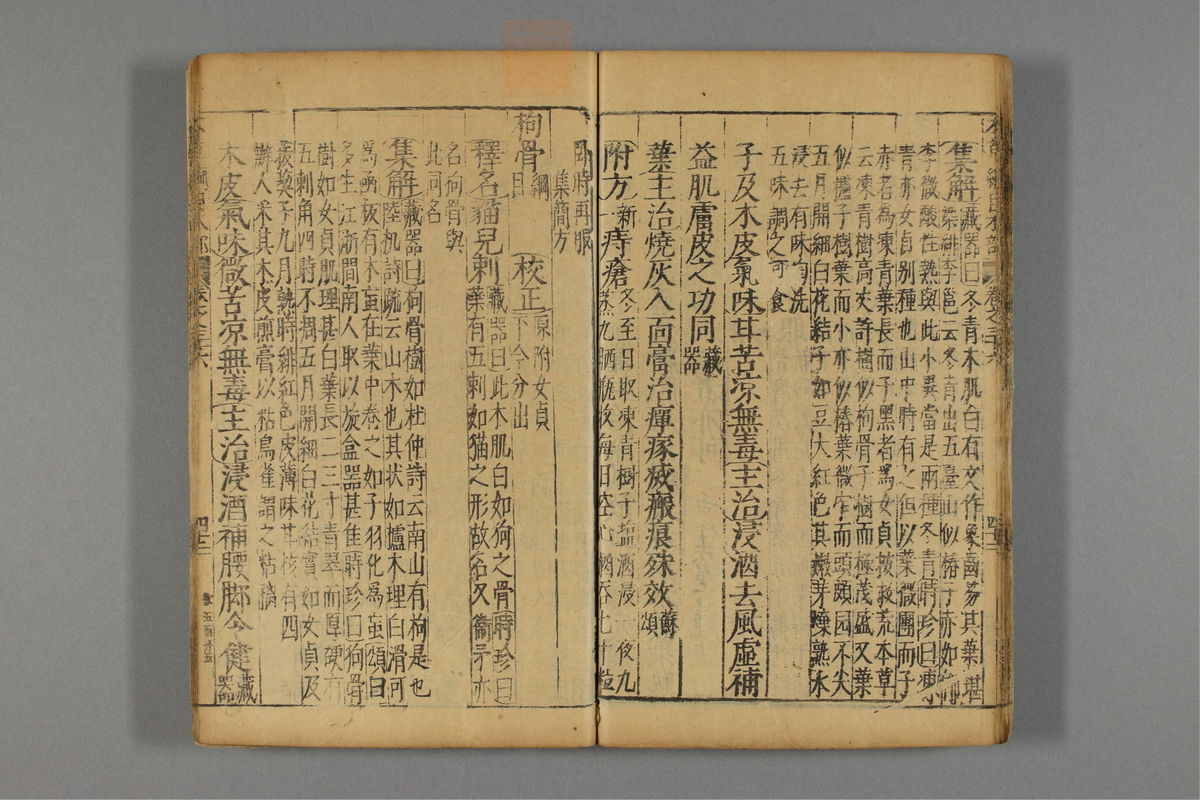 集解藏器曰冬青木肌白有文作象齒笏其葉堪
染緋李邕云冬青出五臺山似椿子赤如郁
李微酸性熱與此小異當是兩種冬青時珍曰凍
青亦女貞别種也山中時有之但以葉微團而子
赤者爲凍青葉長而子黑者爲女貞按救荒本草
云凍青樹高丈許樹似枸骨子樹而極茂盛又葉
似櫨子樹葉而小亦似椿葉微窄而頭頗圓不尖
五月開細白花結子如豆大紅色其嫩芽煠熟水
浸去苦味淘洗
五味調之可食
子及木皮氣味甘苦凉無毒主治浸酒去風虛補
益肌膚皮之功同藏器
葉主治燒灰入面膏治瘅瘃滅瘢痕殊效蘇頌
附方新一痔瘡冬至日取凍青樹子塩酒浸一夜九
蒸九晒瓶收每日空心酒吞七十粒
卧時再服
集簡方
枸骨綱目 校正原附女貞
下今分出
釋名貓兒刺藏器曰此木肌白如狗之骨時珍曰
葉有五刺如猫之形故名又衞矛亦
名枸骨與
此同名
集解藏器曰枸骨樹如杜仲詩云南山有枸是也
陸机詩疏云山木也其状如櫨木理白滑可
爲函板有木䖟在葉中卷之如子羽化爲䖟頌曰
多生江浙間南人取以旋盒器甚佳時珍曰狗骨
樹如女貞肌理甚白葉長二三寸青翠而厚硬有
五刺角四時不凋五月開細白花結實如女貞及
菝葜子九月熟時緋紅色皮薄味甘核有四
瓣人采其木皮煎膏以粘鳥雀謂之粘䵑
木皮氣味微苦凉無毒主治浸酒補腰脚令健藏器